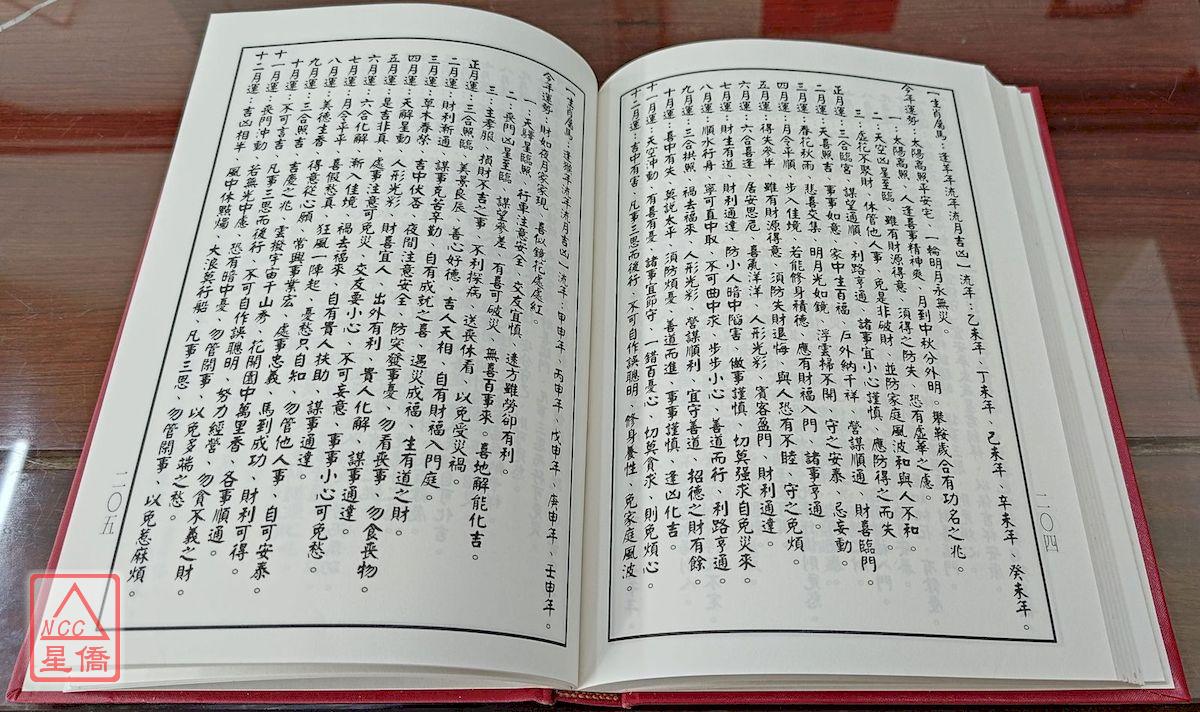 【生肖屬馬：逢羊年流年流月吉凶】流年：乙未年、丁未年、己未年、辛未年、癸未年。
今年運勢：太陽高照平安宅、一輪明月永無災。
一：太陽高照、人逢喜事精神爽、月到中秋分外明。舉鞍歲合有功名之兆。
二：天凶星至臨、雖有財源得意、須得之防失、恐有虛華之慮。
三：虛花不聚財、休管他人事、免是非破財、並防家庭風波和與人不和。
正月運：三合臨宮 謀望通順、利路亨通、諸事宜小心謹慎、應防得之而失。
二月運：天喜照吉 事事如意、家中生百福、戶外納千祥、營謀順通、財喜臨門。
三月運：春花秋雨 悲喜交集、明月光如鏡、浮雲掃不開、守之安泰、忌妄動。
四月運：月令平順 步入佳境、若能修身積德、應有財福入門、諸事亨通。
五月運：得失參半 雖有財源得意、須防失財退悔、與人恐有不睦、守之免煩。
六月運：六合喜逢 居安思危、喜氣洋洋、人形光彩、賓客盈門、財利通達。
七月運：財生有道 財利通達、防小人暗中陷害、做事謹慎、切莫強求自免災來。
八月運：順水行舟 寧可直中取、不可曲中求、步步小心、善道而行、利路亨通。
九月運：三合拱照 禍去福來、人形光彩、營謀順利、宜守善道、招德之財有餘。
十月運：喜中有失 莫說太平、須防煩憂、善道而進、事事謹慎、逢凶化吉。
十一月運：天空沖動 有喜有憂、諸事宜節守、一錯百憂心、切莫貪求、則免煩心。
十二月運：吉中有害 凡事三思而後行、不可自作誤聰明、修身養性、免家庭風波。
二〇四
【生肖屬馬：逢猴年流年流月吉凶】流年：甲申年、丙申年、戊申年、庚申年、壬申年。
今年運勢：財如夜月家家現、喜似鏡花處處紅。
一：天驛星臨照、行車注意安全、交友宜慎、遠方雖勞卻有利。
二：喪門凶星至臨、謀望參差、有喜可破災、無喜百事來。喜地解能化吉。
三：主孝服、損財不吉之事、不利探病、送喪休看、以免受災禍。
正月運：三合照臨 美景良辰、善心好德、吉人天相、自有財福入門庭。
二月運：財利漸通 謀事克苦辛勤、自有成就之喜、遇災成福、生有道之財
三月運：草木春榮 吉中伏吝、夜間注意安全、防突發事憂、勿看喪事、勿食喪物。
四月運：天解星動 人形光彩、財喜宜人、出外有利、貴人化解、謀事通達
五月運：是非真 處事注意可免災、交友要小心、不可妄意、事事小心可免愁。
六月運：六合化解 漸入佳境、禍去福來、自有貴人扶助、謀事通達。
七月運：月令平平 喜假愁真、狂風一陣起、憂愁只自知、勿管他人事、自可安泰。
八月運：美德生香 得意從心願、常興事業宏、處事忠義、馬到成功、財利可得。
九月運：三合照吉 吉慶之兆、雲撥宇宙千山秀、花開園中萬里香、各事順通。
十月運：不可言吉 凡事三思而後行、不可自作誤聰明、努力經營、勿貪不義之財
十一月運：喪門沖動 若無光中慮、恐有暗中憂、勿管閒事、以免多端之愁。
十二月運：吉凶相半、風中休點燭、大浪莫行船、凡事三思、勿管閒事 以免惹麻煩。
二〇五
NCC
星僑